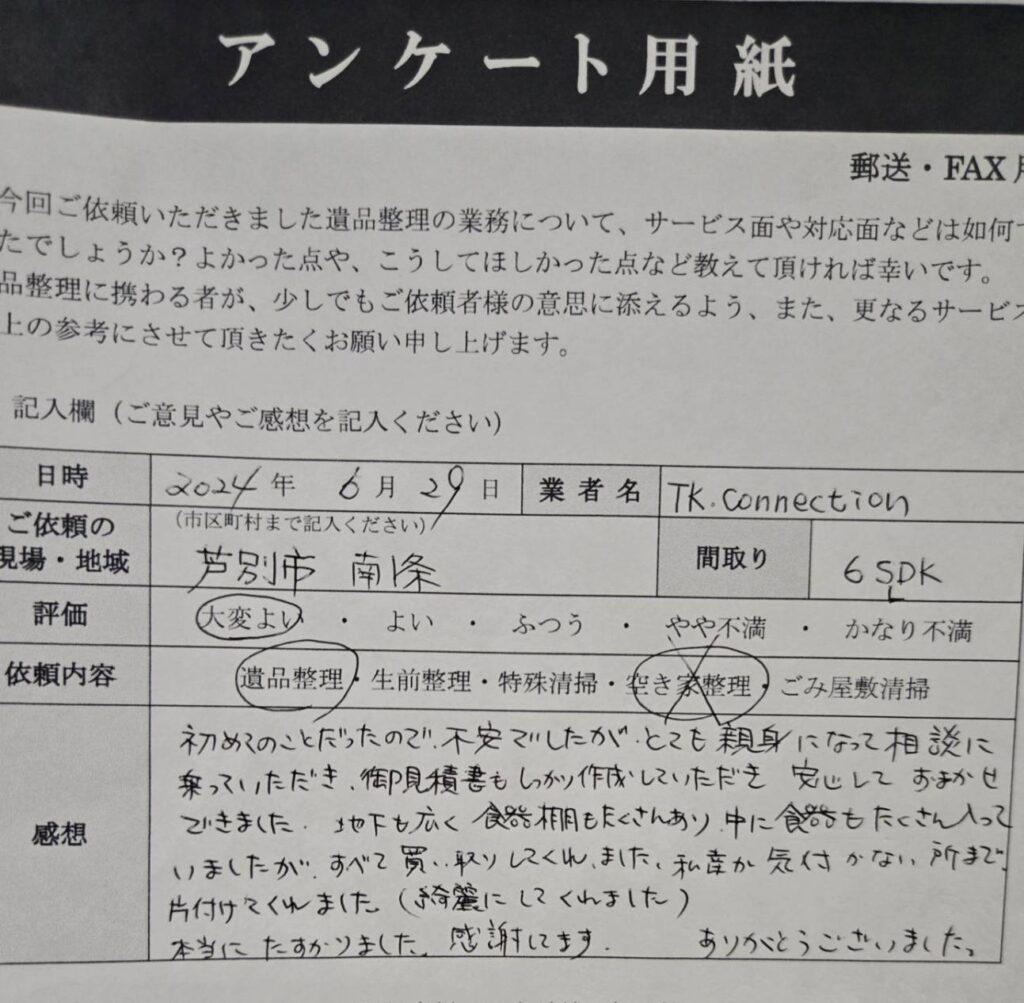 アンケート用紙
郵送・FAX
今回ご依頼いただきました遺品整理の業務について、サービス面や対応面などは如何で
たでしょうか?よかった点や、こうしてほしかった点など教えて頂ければ幸いです。
品整理に携わる者が、少しでもご依頼者様の意思に添えるよう、また、更なるサービス
上の参考にさせて頂きたくお願い申し上げます。
記入欄(ご意見やご感想を記入ください)
日時 2024年 6月29日 業者名 TK.Connection
ご依頼の現場・地域 (市区町村まで記入ください) 芦別市 南條 間取り 6SLDK
評価 大変よい ・ よい ・ ふつう ・ やや不満 ・ かなり不満
依頼内容 遺品整理・生前整理・特殊清掃・空き家整理・ごみ屋敷清掃
感想
初めてのことだったので、不安でしたが、とても親身になって相談に
乗っていただき、御見積書もしっかり作成していただき 安心して おまかせ
できました. 地下も広く 食器棚もたくさんあり、中に食器もたくさん入って
いましたが、すべて買い取りしてくれました、私達が気付かない所まで
片付けてくれました。(綺麗にしてくれました)
本当に たすかりました。感謝してます. ありがとうございました。